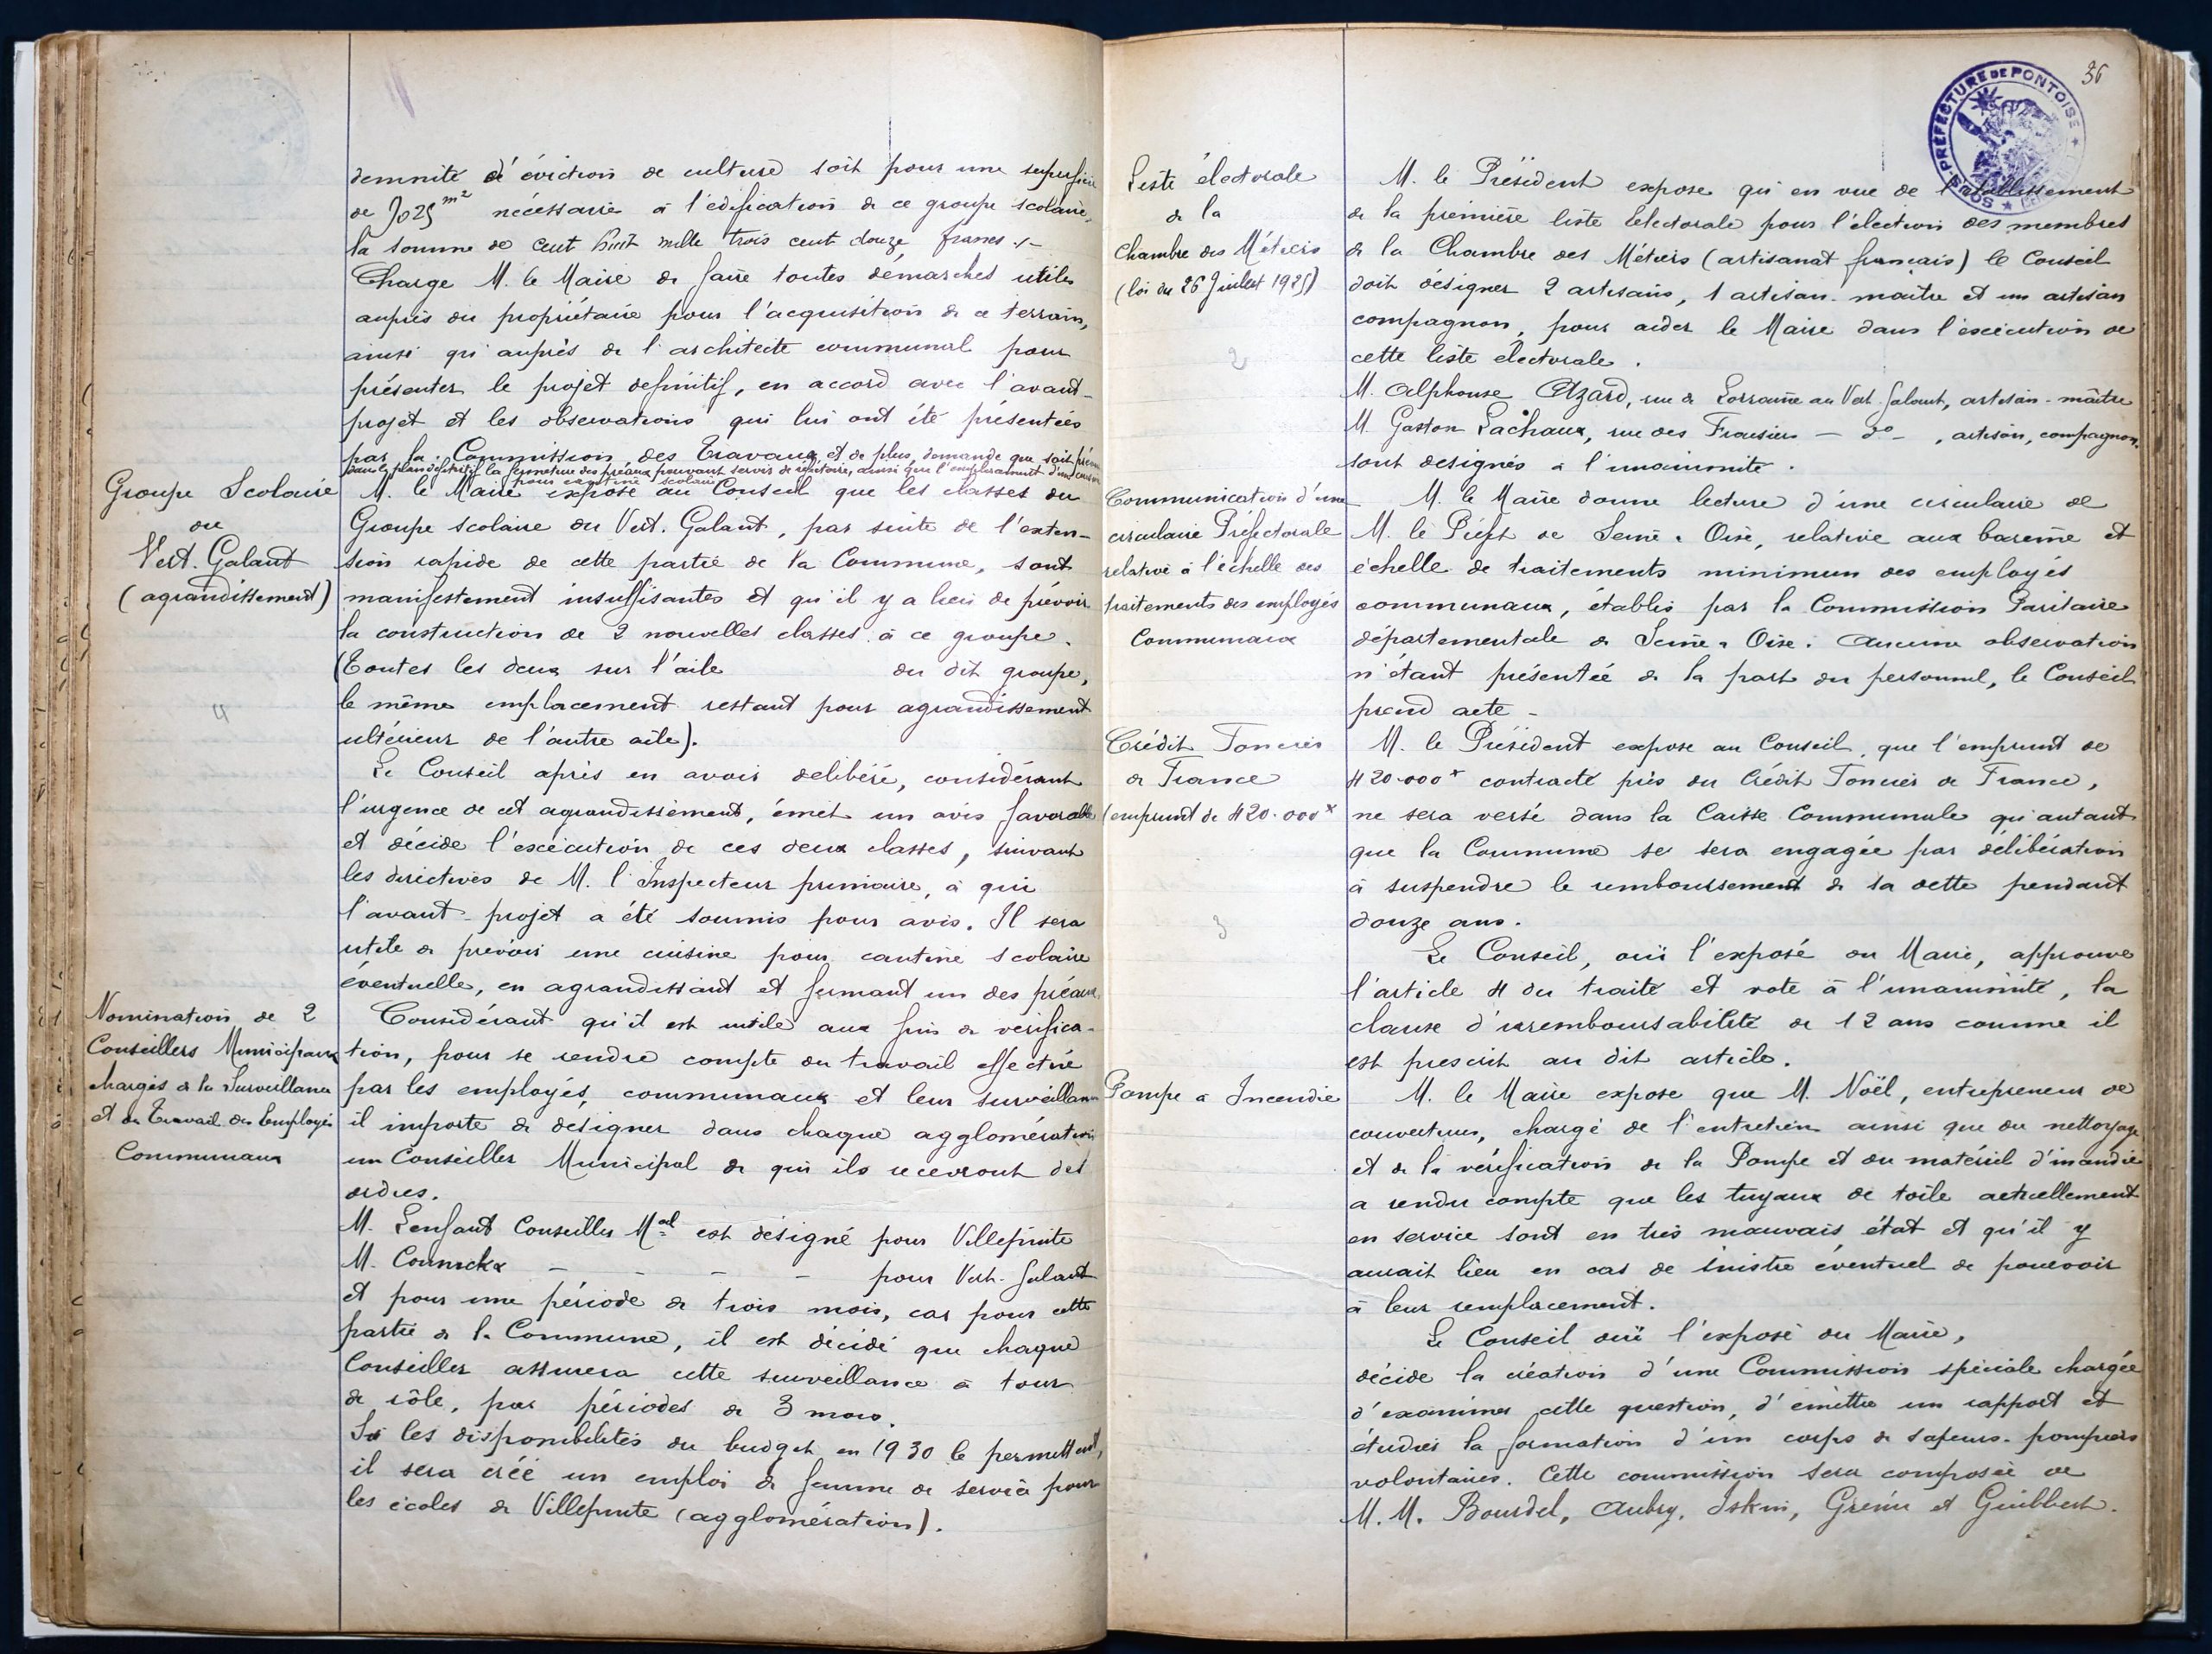 demnité d'éviction de culture soit pour une superficie
de 9025 m² nécessaire à l'édification de ce groupe scolaire,
la somme de cent huit mille trois cent douze francs.-
Charge M. le Maire de faire toutes démarches utiles
auprès du propriétaire pour l'acquisition de ce terrain,
ainsi qu'auprès de l'architecte communal pour
présenter le projet définitif, en accord avec l'avant-
projet et les observations qui lui ont été présentées
par la Commission des Travaux et de plus, demande que soit
dans le plan définitif la fermeture des préaux pouvant servir de réfectoire, ainsi que l'emplacement d'une cuisine
pour cantine scolaire
Groupe Scolaire
du
Vert-Galant
(agrandissement)
4
M. le Maire expose au Conseil que les classes du
Groupe scolaire du Vert-Galant, par suite de l'exten-
sion rapide de cette partie de la Commune, sont
manifestement insuffisantes et qu'il y a lieu de prévoir
la construction de 2 nouvelles classes à ce groupe.
(Toutes les deux sur l'aile du dit groupe,
le même emplacement restant pour agrandissement
ultérieur de l'autre aile).
Le Conseil après en avoir délibéré, considérant
l'urgence de cet agrandissement, émet un avis favorable
et décide l'exécution de ces deux classes, suivant
les directives de M. l'Inspecteur primaire, à qui
l'avant-projet a été soumis pour avis. Il sera
utile de prévoir une cuisine pour cantine scolaire
éventuelle, en agrandissant et fermant un des préaux.
Nomination de 2
Conseillers Municipaux
chargés de la Surveillance
et du Travail des Employés
Communaux
Considérant qu'il est utile aux fins de vérifica-
tion, pour se rendre compte du travail effectué
par les employés communaux et leur surveillance
il importe de désigner dans chaque agglomération
un Conseiller Municipal de qui ils recevront des
ordres.
M. Lenfant Conseiller Mal est désigné pour Villepinte
M. Connockx - - - - pour Vert-Galant
et pour une période de trois mois, car pour cette
partie de la Commune, il est décidé que chaque
Conseiller assurera cette surveillance à tour
de rôle, par périodes de 3 mois.
Si les disponibilités du budget en 1930 le permettent,
il sera créé un emploi de femme de service pour
les écoles de Villepinte (agglomération).
36
SOUS-PRÉFECTURE DE PONTOISE
Liste électorale
de la
Chambre des Métiers
(loi du 26 Juillet 1925)
2
M. le Président expose qu'en vue de l'établissement
de la première liste électorale pour l'élection des membres
de la Chambre des Métiers (artisanat français) le Conseil
doit désigner 2 artisans, 1 artisan-maître et un artisan
compagnon, pour aider le Maire dans l'exécution de
cette liste électorale.
M. Alphonse Azard, rue de Lorraine au Vert-Galant, artisan-maître
M. Gaston Lachaux, rue des - do - , artisan, compagnon,
sont désignés à l'unanimité.
Communication d'une
circulaire Préfectorale
relative à l'échelle des
traitements des employés
Communaux
M. le Maire donne lecture d'une circulaire de
M. le Préfet de Seine & Oise, relative aux barème et
échelle de traitements minimum des employés
communaux, établis par la Commission Paritaire
départementale de Seine & Oise. Aucune observation
n'étant présentée de la part du personnel, le Conseil
prend acte -
Crédit Foncier
de France
(emprunt de 420.000 f
3
M. le Président expose au Conseil, que l'emprunt de
420.000 f contracté près du Crédit Foncier de France,
ne sera versé dans la Caisse Communale qu'autant
que la Commune se sera engagée par délibération
à suspendre le remboursement de sa dette pendant
douze ans.
Le Conseil, ouï l'exposé du Maire, approuve
l'article 4 du traité et vote à l'unanimité, la
clause d'irremboursabilité de 12 ans comme il
est prescrit au dit article.
Pompe à Incendie
M. le Maire expose que M. Noël, entrepreneur de
couverture, chargé de l'entretien ainsi que du nettoyage
et de la vérification de la Pompe et du matériel d'incendie
a rendu compte que les tuyaux de toile actuellement
en service sont en très mauvais état et qu'il y
aurait lieu en cas de sinistre éventuel de pourvoir
à leur remplacement.
Le Conseil ouï l'exposé du Maire,
décide la création d'une Commission spéciale chargée
d'examiner cette question, d'émettre un rapport et
étudier la formation d'un corps de sapeurs-pompiers
volontaires. Cette commission sera composée de
M.M. Bourdel, Aubry, Iskin, Grenu et Guilbert.